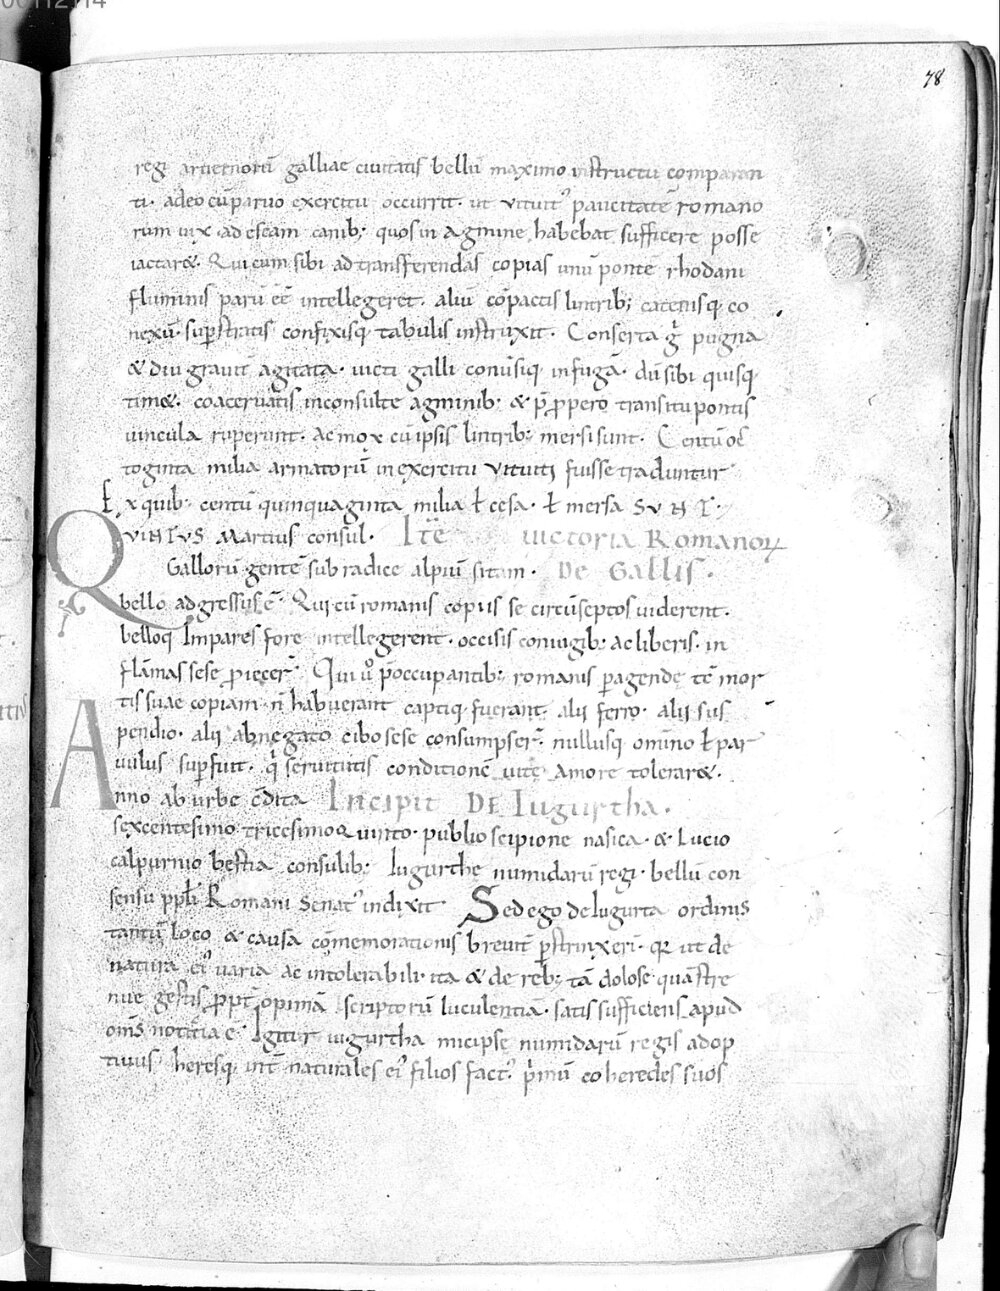 00112114
78
regi aruernorū galliae ciuitatis bellū maximo instructu comparan
ti· adeo cū paruo exercitu occurrit· ut vituit᾽ paucitatē romano
rum uix ad escam canib; quos in agmine habebat sufficere posse
iactar&· Qui cum sibi ad transferendas copias unū pontē rhodani
fluminis parū eē intellegeret· aliū cōpactis lintrib; catenisq; co
nexū· suꝑstratis confixisq; tabulis instruxit· Conserta gͥ pugna
& diu grauit̄ agitata· uicti galli conuersiq; in fugā· dū sibi quisq;
tim&· coaceruatis inconsulte agminib; & p̄propero transitu pontis
uincula ruperunt· ac mox cū ipsis lintrib; mersi sunt· Centū oc
toginta milia armatorū in exercitu vituiti fuisse traduntur
Ex quib; centū quinquaginta milia ł cesa· ł mersa SUNT·
QUINTUS Martius consul· Itē uictoria Romanorꝝ
Gallorū gentē sub radice alpiū sitam· DE Gallis·
bello adgressus ē· Qui cū romanis copiis se circūseptos uiderent·
belloq; Impares fore intellegerent· occisis coniugib; ac liberis· in
flāmas sese ꝓiecer̄· Qui u᾽o p̄occupantib; romanis ꝑagende tc̄ mor
tis suae copiam n̄ habuerant captiq; fuerant· alii ferro· alii sus
pendio· alii abnegato cibo sese consumpser̄· nullusq; omīno ł par
uulus suꝑfuit· qͥ seruitutis conditionē uitę amore tolerar&·
Anno ab urbe cōdita Incipit DE Iugurtha·
sexcentesimo tricesimoquinto· publio scipione nasica· & Lucio
calpurnio bestia consulib; Iugurthe numidarū regi· bellū con
sensu ppłi Romani Senat᾽ indixit· Sed ego de Iugurta ordinis
tantū loco & causa cōmemorationis breuit̄ ꝑstrinxeri· qꝛ ut de
natura ei᾽ uaria ac intolerabili· ita & de reb; tā dolose quā stre
nue gestis ꝓpt̄ opimā scriptorū luculentiā· satis sufficiens apud
omīs notitia ē· Igitur iugurtha micipse numidarū regis adop
tiuus heresq; int̄ naturales ei᾽ filios fact᾽ pͥmū coheredes suos